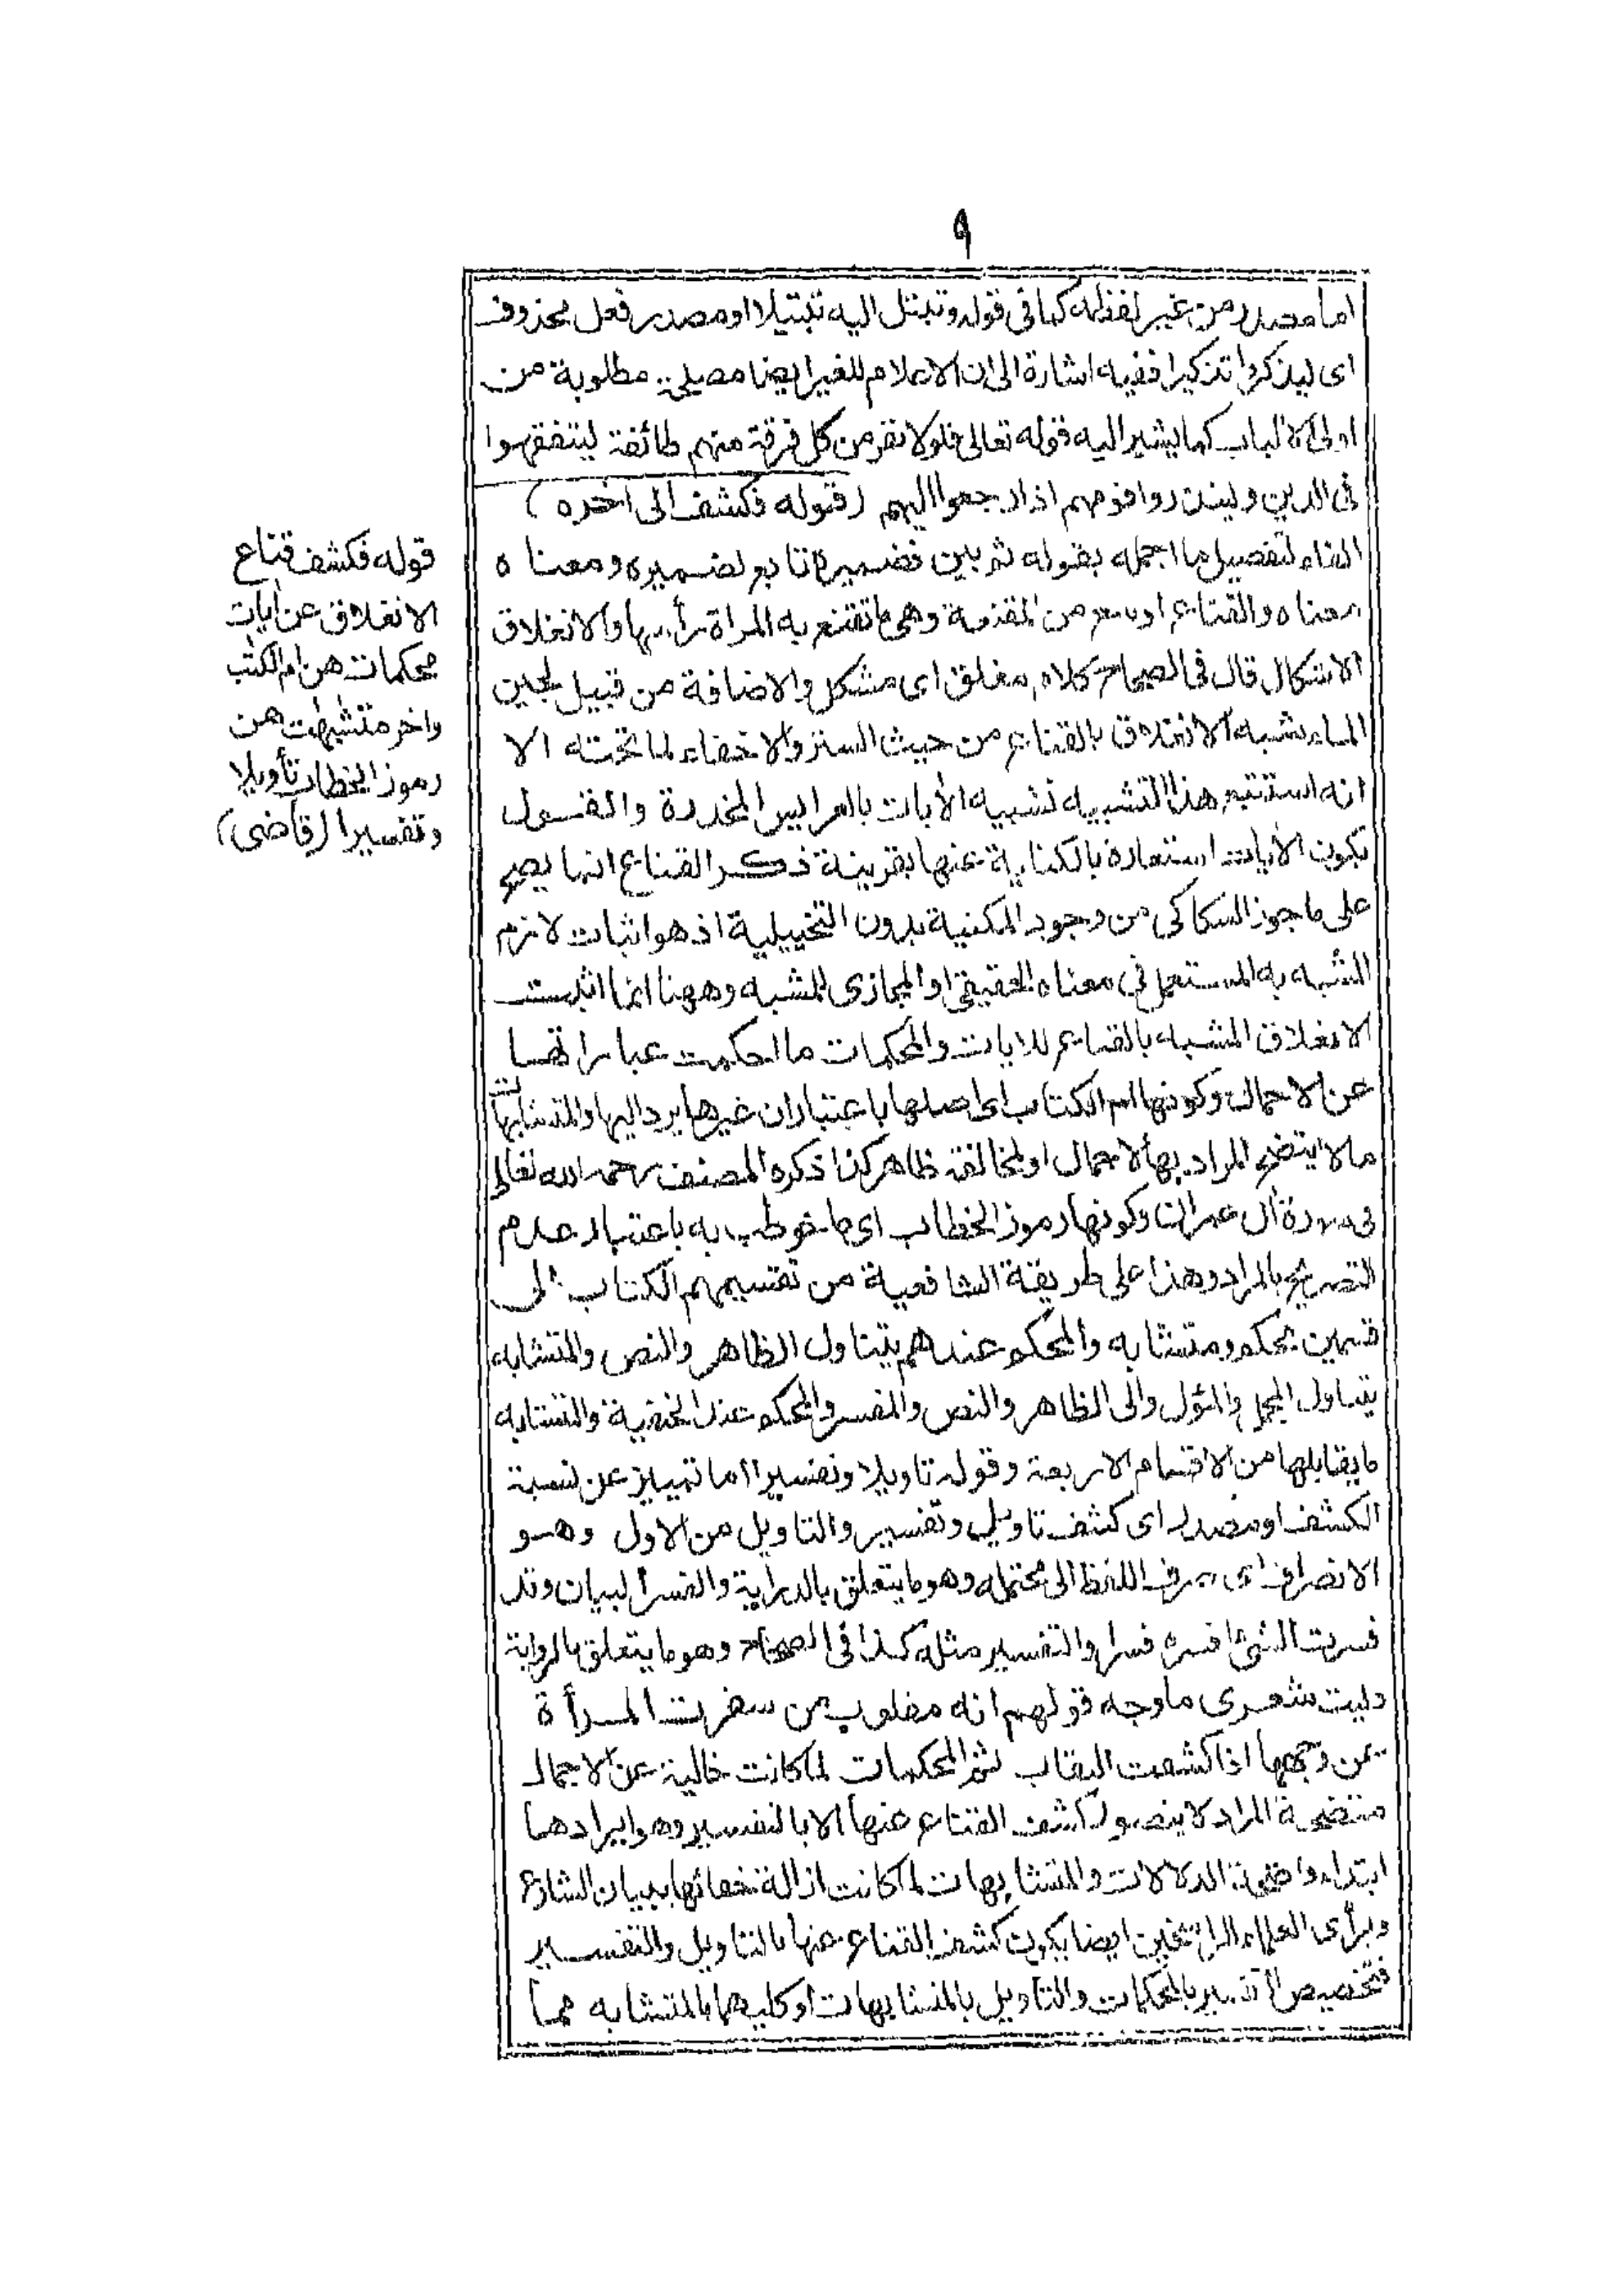 ٩
اما مصدر من غير لفظه كما فى قوله وتبتل اليه تبتيلا او مصدر فعل محذوف
اى ليذكروا تذكيرا ففيه اشارة الى ان الاعلام للغير ايضا مصلحة مطلوبة من
اولى الالباب كما يشير اليه قوله تعالى فلولا نفر من كل فرقة منهم طائفة ليتفقهوا
فى الدين ولينذروا قومهم اذا رجعوا اليهم (قوله فكشف الى اخره)
الفاء لتفصيل ما اجمله بقوله ثم بين فضميره تابع لضميره ومعناه
معناه والقناع اوسع من المقنعة وهى ما تقنع به المرأة رأسها والانغلاق
الاشكال قال فى الصحاح كلام مغلق اى مشكل والاضافة من قبيل لجين
الماء شبه الانغلاق بالقناع من حيث الستر والاخفاء لما تحته الا
انه استتبع هذا التشبيه تشبيه الأيات بالعرايس المخدرة والقول
بكون الأيات استعارة بالكناية عنها بقرينة ذكر القناع انما يصح
على ما جوز السكاكى من وجود المكنية بدون التخييلية اذ هو اثبات لازم
المشبه به المستعمل فى معناه الحقيقى او المجازى للمشبه وههنا انما اثبت
الانغلاق المشبه بالقناع للايات والمحكمات ما احكمت عباراتها
عن الاجمال وكونها ام الكتاب اى اصلها باعتبار ان غيرها يرد اليها والمتشابهات
ما لا يتضح المراد بها لاجمال او لمخالفة ظاهر كذا ذكره المصنف رحمه الله تعالى
فى سورة أل عمران وكونها رموز الخطاب اى ما خوطب به باعتبار عدم
التصريح بالمراد وهذا على طريقة الشافعية من تقسيمهم الكتاب الى
قسمين محكم ومتشابه والمحكم عندهم يتناول الظاهر والنص والمتشابه
يتناول المجمل والمؤل والى الظاهر والنص والمفسر والمحكم عند الحنفية والمتشابه
ما يقابلها من الاقسام الاربعة وقوله تاويلا وتفسيرا اما تمييز عن نسبة
الكشف او مصدر اى كشف تاويل وتفسير والتاويل من الاول وهو
الانصراف اى صرف اللفظ الى محتمله وهو ما يتعلق بالدراية والفسر البيان وقد
فسرت الشئ افسره فسرا والتفسير مثله كذا فى الصحاح وهو ما يتعلق بالرواية
وليت شعرى ما وجه قولهم انه مقلوب من سفرت المرأة
عن وجهها اذا كشفت النقاب ثم المحكمات لما كانت خالية عن الاجمال
متضحة المراد لا يتصور كشف القناع عنها الا بالتفسير وهو ايرادها
ابتداء واضحة الدلالات والمتشابهات لما كانت ازالة خفائها ببيان الشارع
وبرأى العلماء الراسخين ايضا يكون كشف القناع عنها بالتاويل والتفسير
فتخصيص التفسير بالمحكمات والتاويل بالمتشابهات او كليهما بالمتشابه مما
قوله فكشف قناع
الانغلاق عن أيات
محكمات هن ام الكتب
واخر متشبهت هن
رموز الخطاب تأويلا
وتفسيرا (قاضى)